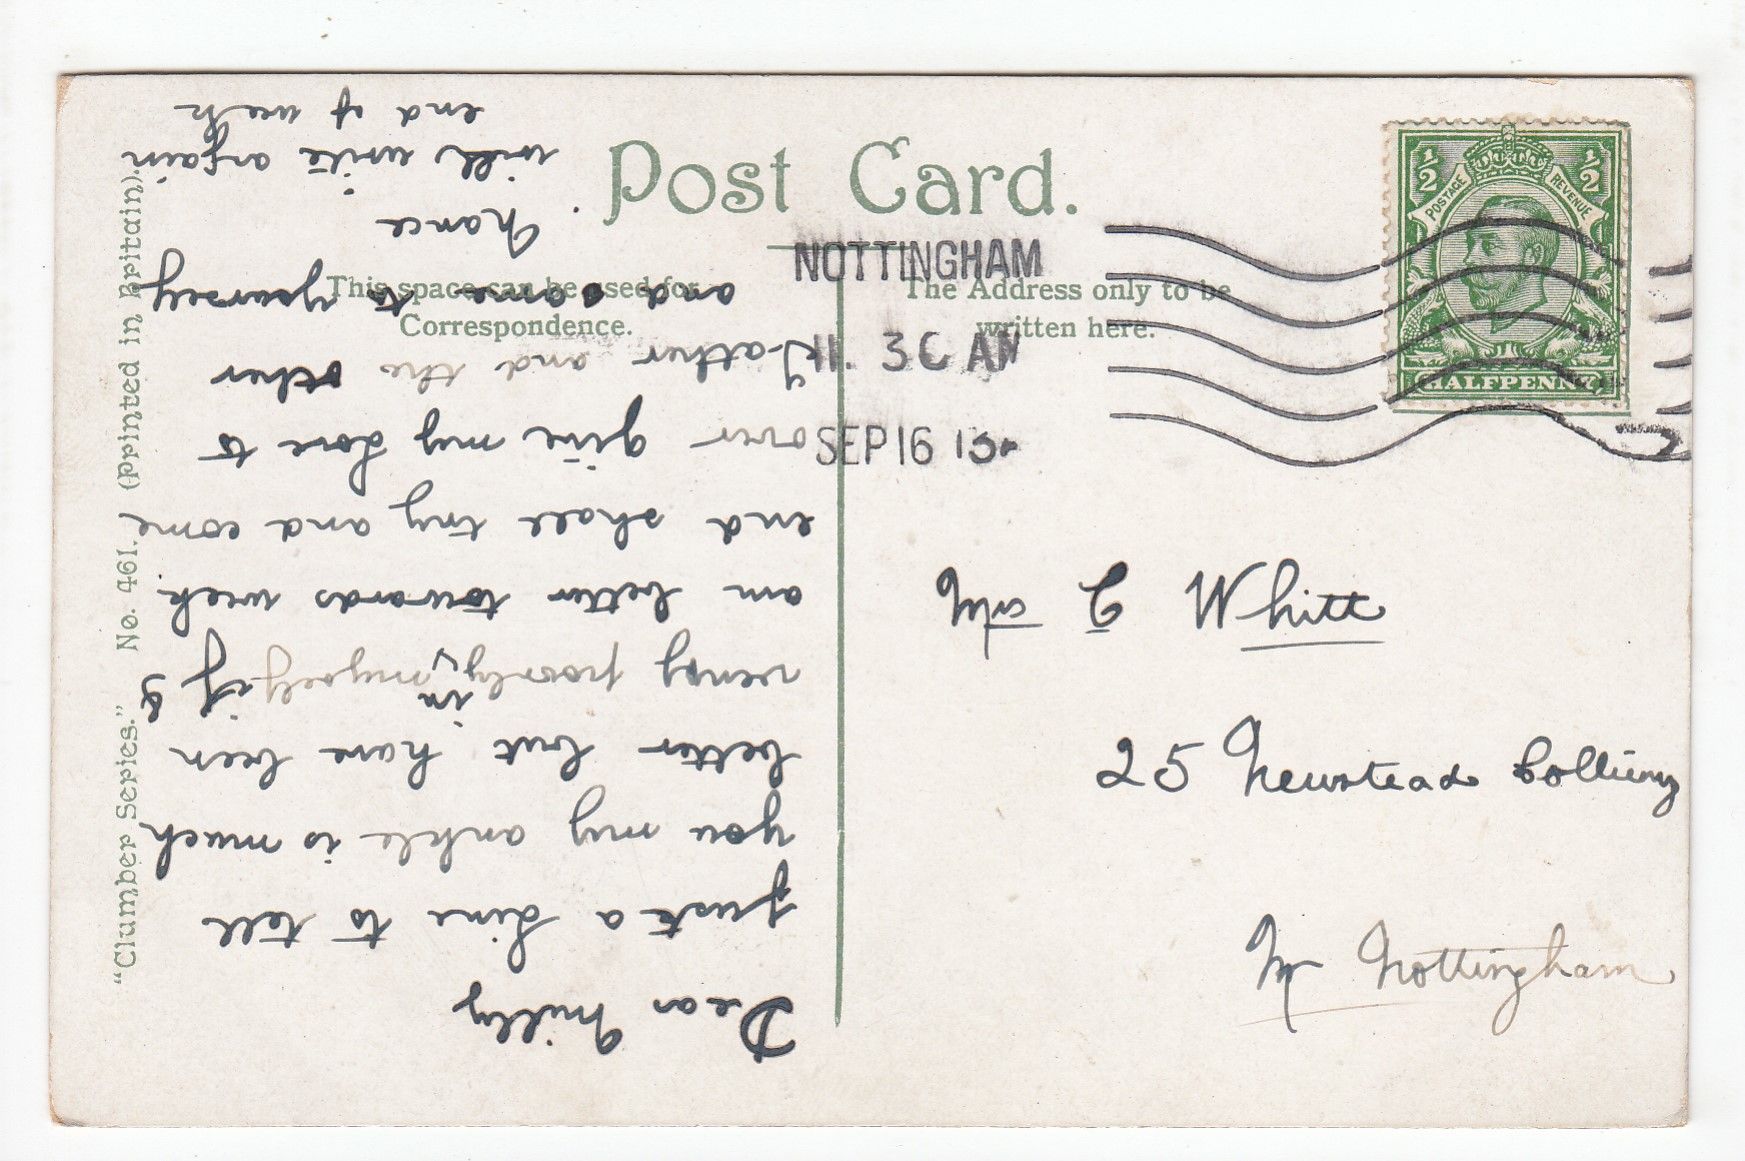 Post Card.
This space can be used for
Correspondence.
The Address only to be
written here.
"Clumber Series." No. 461. (Printed in Britain).
NOTTINGHAM
11. 30 AM
SEP 16 13
½ ½
POSTAGE REVENUE
HALFPENNY
Dear Milly
just a line to tell
you my ankle is much
better but have been
very poorly in myself if I
am better towards week
end shall try and come
over give my love to
Father and the other
and same to yourself
Nance
will write again
end of week
Mrs G Whitt
25 Newstead Colliery
Nr Nottingham